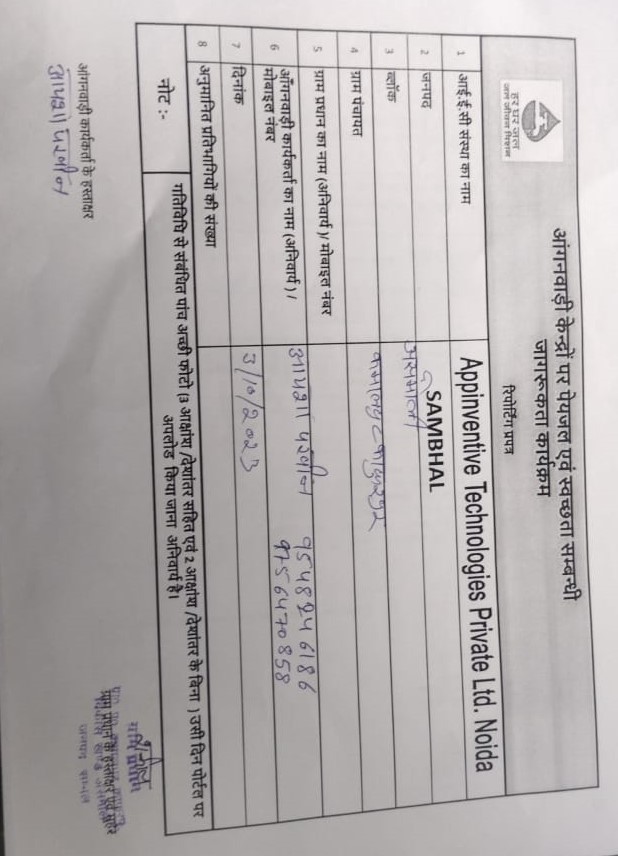 हर घर जल
जल जीवन मिशन
आंगनवाड़ी केन्द्रों पर पेयजल एवं स्वच्छता सम्बन्धी
जागरूकता कार्यक्रम
रिपोर्टिंग प्रपत्र
1 आई.ई.सी संस्था का नाम Appinventive Technologies Private Ltd. Noida
2 जनपद SAMBHAL
3 ब्लॉक असमोली
4 ग्राम पंचायत
5 ग्राम प्रधान का नाम (अनिवार्य)/ मोबाइल नंबर
6 आँगनवाड़ी कार्यकर्ता का नाम (अनिवार्य) / मोबाइल नंबर आयशा परवीन 9548246186
9756470858
7 दिनांक 3/10/2023
8 अनुमानित प्रतिभागियों की संख्या
नोट :- गतिविधि से संबंधित पांच अच्छी फोटो (3 आक्षांश /देशांतर सहित एवं 2 आक्षांश /देशांतर के बिना ) उसी दिन पोर्टल पर
अपलोड किया जाना अनिवार्य है।
आंगनवाड़ी कार्यकर्ता के हस्ताक्षर
आयशा परवीन
ग्राम प्रधान के हस्ताक्षर एवं मुहर
जनपद सम्भल